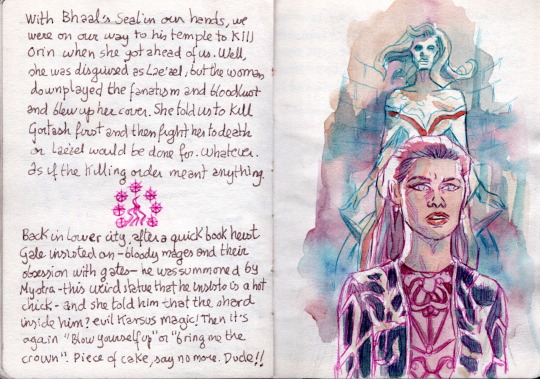 With Bhaal's Seal in our hands, we
were on our way to his temple to kill
Orin when she got ahead of us. Well,
she was disguised as Lae'zel, but the woman
downplayed the fanatism and bloodlust
and blew up her cover. She told us to kill
Gortash first and then fight her to death
or Lae'zel would be done for. Whatever.
As if the killing order meant anything.
Back in Lower city, after a quick book heist
Gale insisted on - bloody mages and their
obsession with gates - he was summoned by
Mystra - this weird statue that he insists is a hot
chick - and she told him that the shard
inside him? evil Karsus magic! Then it's
again "Blow yourself up" or "bring me the
crown". Piece of cake, say no more. Dude!!